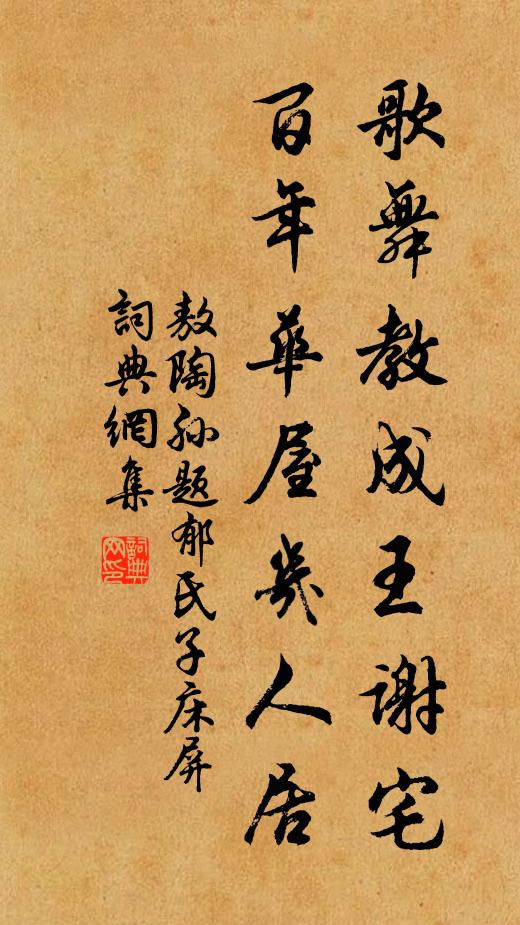 歌舞教成王謝宅
百年華屋幾人居
敖陶孙题郁氏子床屏
詞典網集
詞典
网印